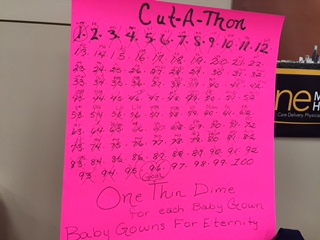 Cut-A-Thon
1. 2. 3. 4. 5. 6. 7. 8. 9. 10. 11. 12.
13. 14. 15. 16. 17. 18. 19. 20. 21. 22.
23. 24. 25. 26. 27. 28. 29. 30. 31. 32.
33. 34. 35. 36. 37. 38. 39. 40. 41. 42.
43. 44. 45. 46. 47. 48. 49. 50. 51. 52.
53. 54. 55. 56. 57. 58. 59. 60. 61. 62.
63. 64. 65. 66. 67. 68. 69. 70. 71. 72
73. 74. 75. 76. 77. 78. 79. 80. 81. 82
83. 84. 85. 86. 87. 88. 89. 90. 91. 92
93. 94. 95. 96. 97. 98. 99. 100
Goal
One Thin Dime
for each Baby Gown
Baby Gowns For Eternity
ne
Care Delivery